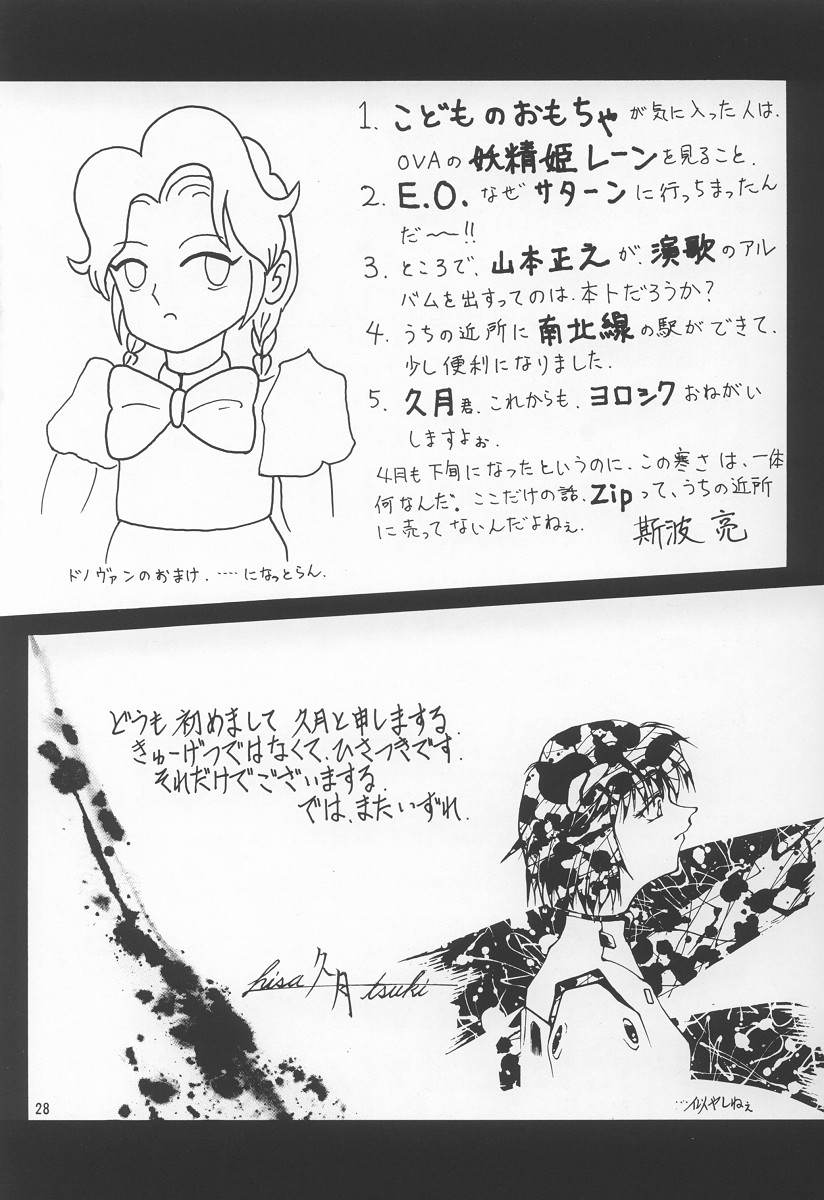 1. こどものおもちゃが気に入った人は、
OVAの妖精姫レーンを見ること.
2. E.O. なぜサターンに行っちまったん
だ〜〜!!
3. ところで、山本正之が、演歌のアル
バムを出すってのは、本トだろうか?
4. うちの近所に南北線の駅ができて、
少し便利になりました.
5. 久月君、これからも、ヨロシクおねがい
しますよぉ.
4月も下旬になったというのに、この寒さは、一体
何なんだ。ここだけの話、Zipって、うちの近所
に売ってないんだよねぇ.
斯波 亮
ドノヴァンのおまけ. ‥‥になっとらん.
どうも 初めまして 久月と申しまする.
きゅーげつではなくて、ひさつきです.
それだけでございまする.
では、またいずれ.
hisa久月tsuki
…似やしねぇ
28